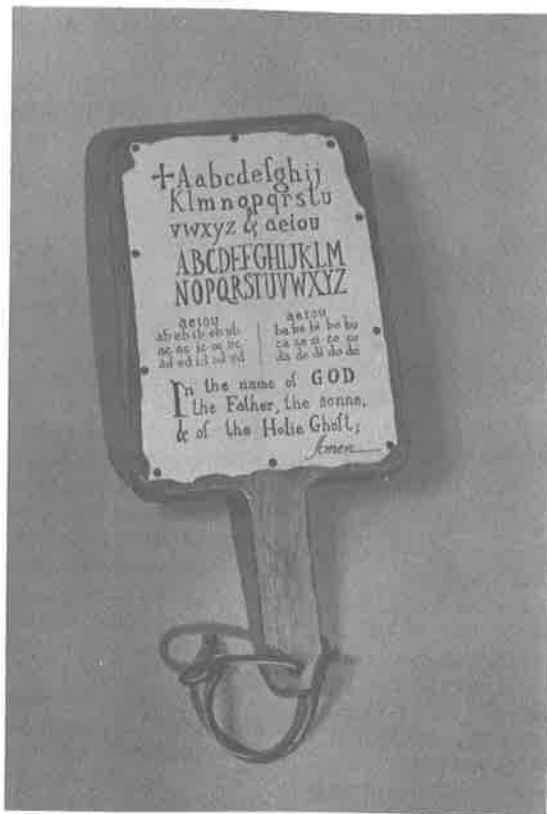 +Aabcdefghij
Klmnopqrstu
vwxyz & aeiou
ABCDEFGHIJKLM
NOPQRSTUVWXYZ
aeiou
ab eb ib ob ub
ac ec ic oc uc
ad ed id od ud
aeiou
ba be bi bo bu
ca ce ci co cu
da de di do du
In the name of GOD
the Father, the sonne,
& of the Holie Ghoſt;
Amen